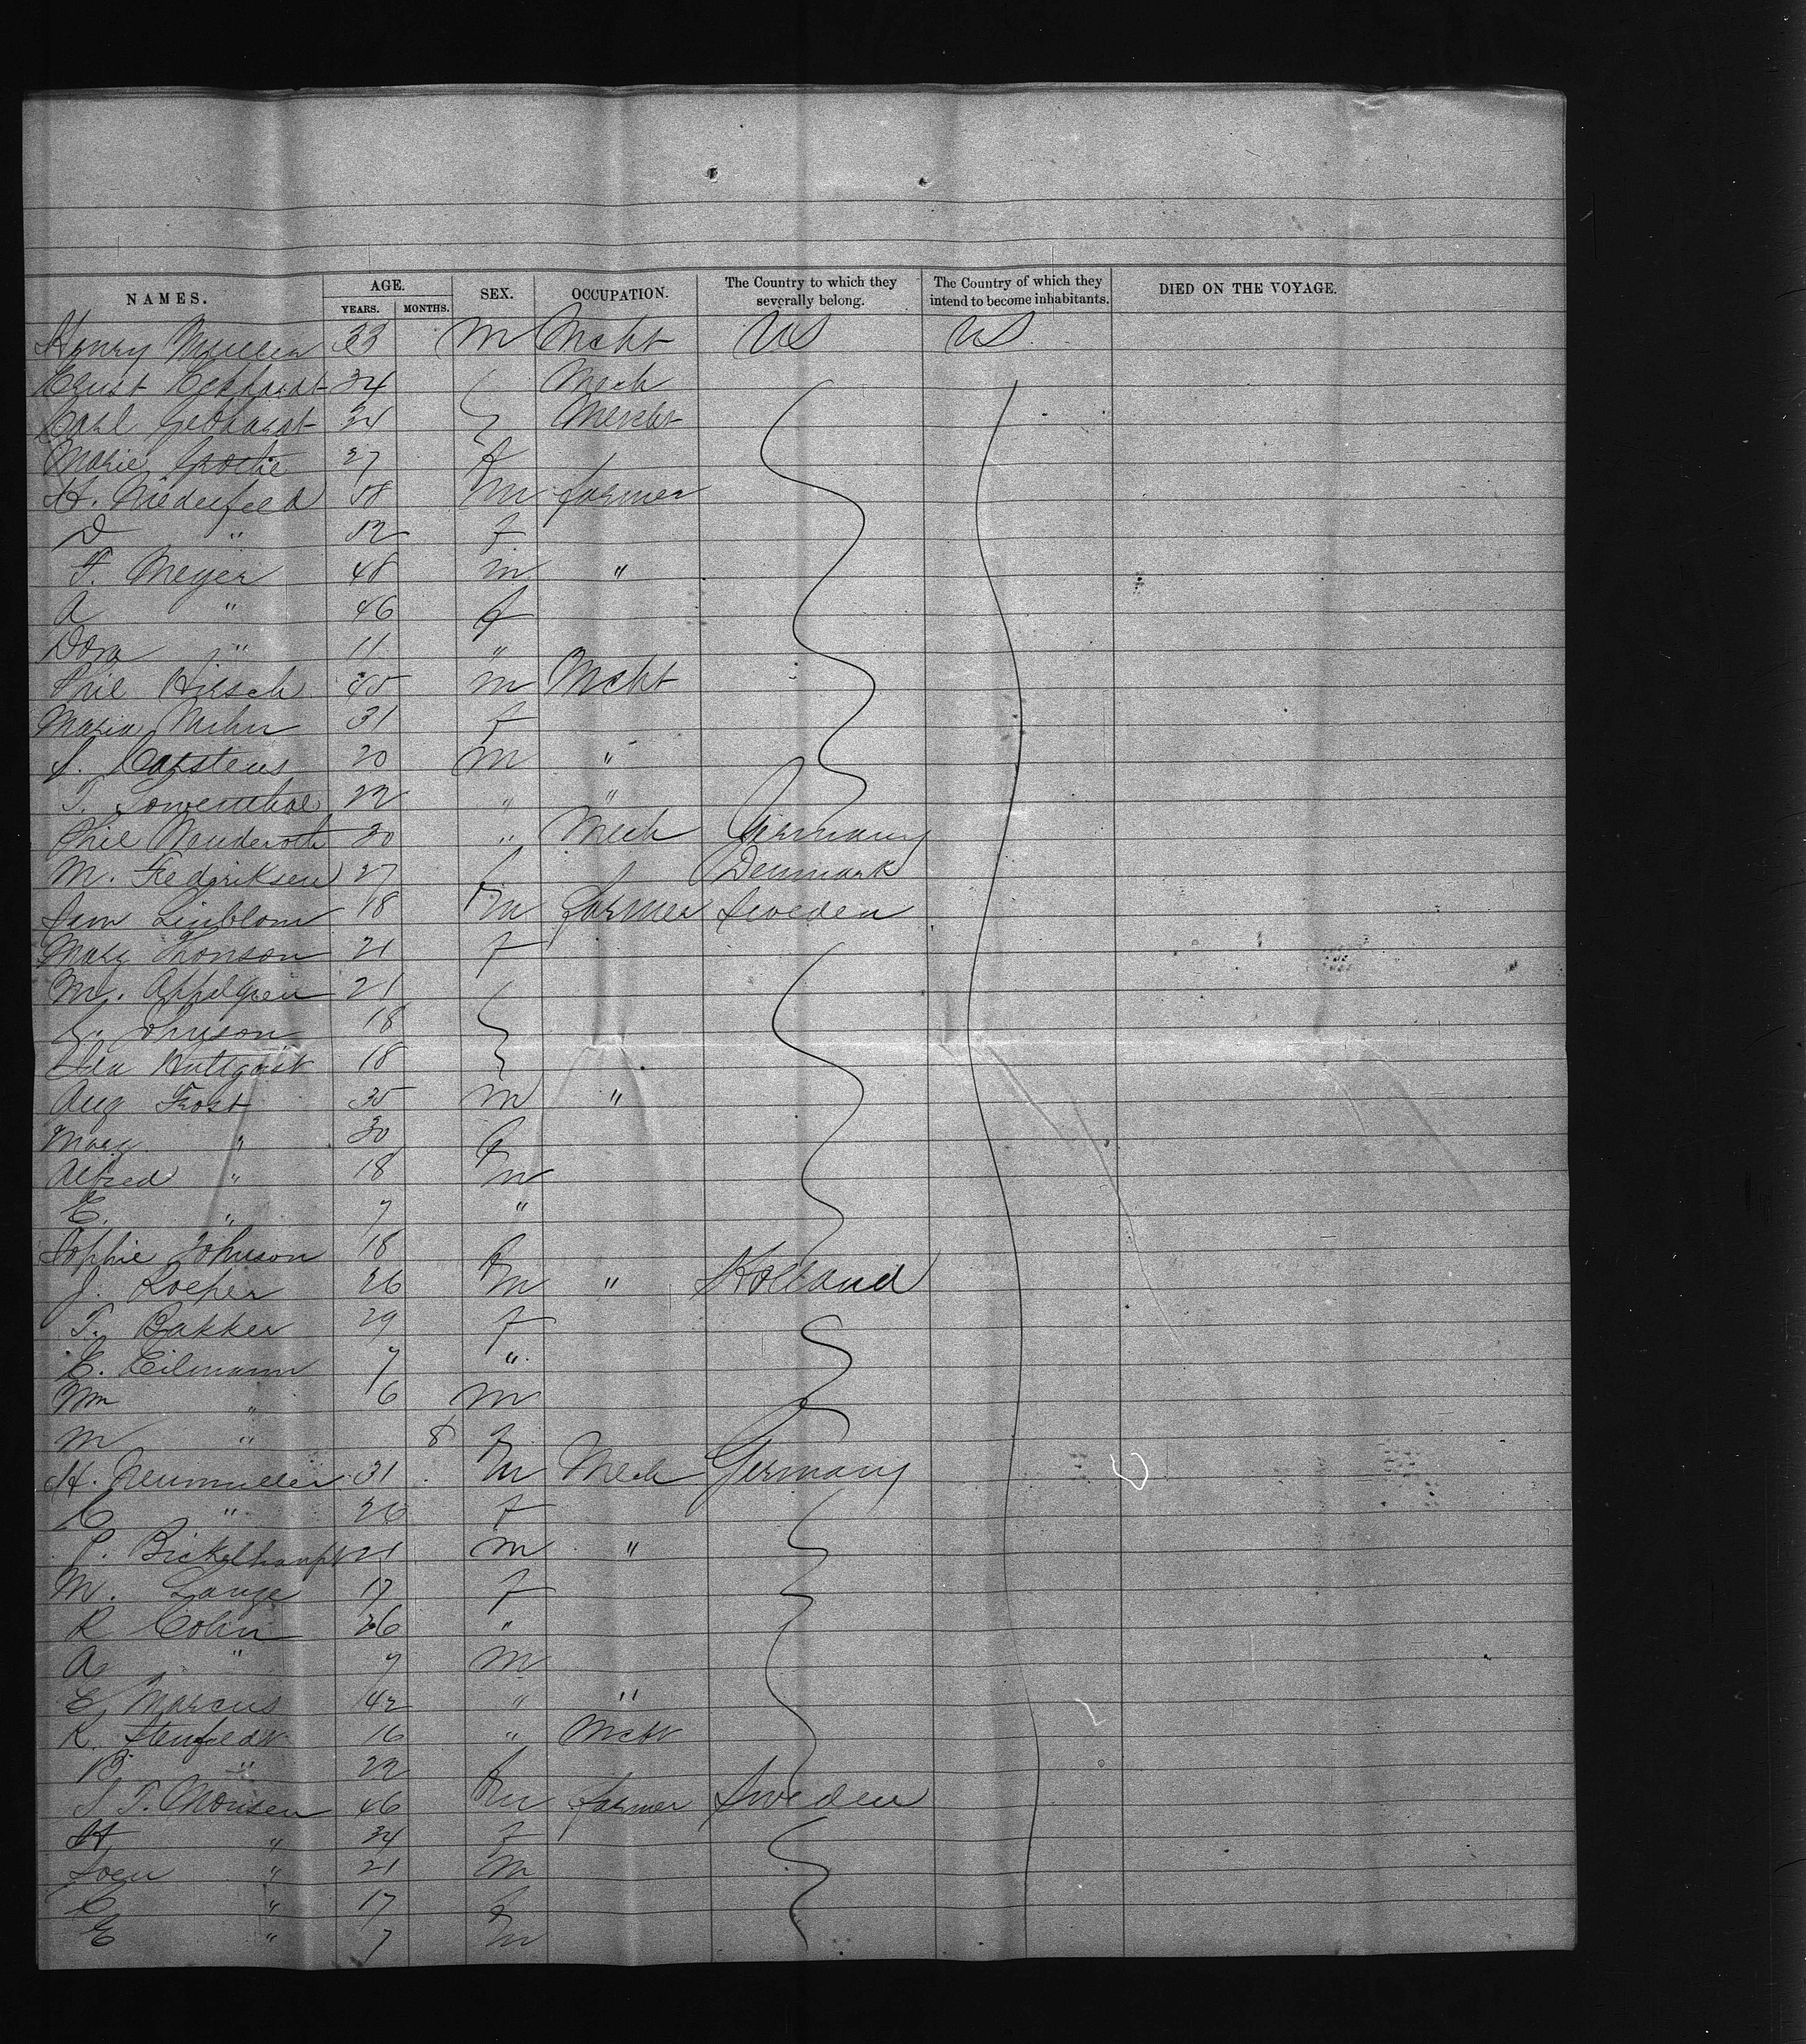 NAMES. AGE. SEX. OCCUPATION. The Country to which they severally belong. The Country of which they intend to become inhabitants. DIED ON THE VOYAGE.
YEARS. MONTHS.
Henry Mueller 33 m Mcht US US
Ernst Eckhardt 34 Mech
Carl Gebhardt 34 Mercht
Marie Grothe 27 f
H. Niederfeld 58 m farmer
D " 52 f
F. Meyer 48 m "
A " 46 f
Dora " 11 "
Phil Hirsch 45 m Mcht
Maria 31 f
J. Carstens 20 m "
T. Lowenthal 22 " "
Phil Nenderoth 30 " Mech Germany
M. Fredriksen 27 f Denmark
Sam Linblom 18 m farmer Sweden
Mary Thonson 21 f
M. Appelgren 21
Johnson 18
Hultqvist 18
Aug Frost 35 m "
Mary " 30 f
Alfred " 18 m
E. " 7 "
Sophie Johnson 18 f
J. Roeper 26 m " Holland
T. Bakker 29 f
E. Eilmann 7 "
Wm " 6 m
M " 8 f
H. Neumueller 31 m Mech Germany
C " 26 f
P. Bickelhaupt 21 m "
M. Lange 17 f
R Cohn 26 "
A " 7 m
E Marcus 42 " "
R. 16 " Mcht
B " 22 f
S T. Monsen 46 m farmer Sweden
H " 34 f
Soen " 21 m
C " 17 f
E " 7 m